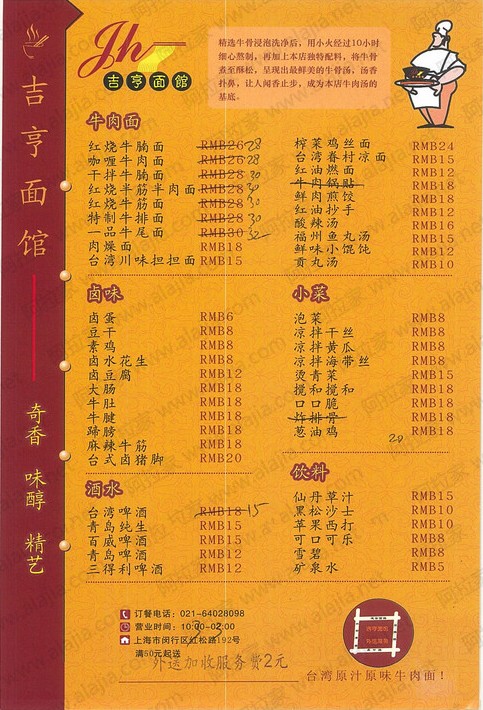 Jh
吉亨面馆
精选牛骨浸泡洗净后，用小火经过10小时
细心熬制，再加上本店独特配料，将牛骨
煮至酥松，呈现出最鲜美的牛骨汤，汤香
扑鼻，让人闻香止步，成为本店牛肉汤的
基底。
吉亨面馆
奇香 味醇 精艺
牛肉面
红烧牛腩面 RMB26 28
咖喱牛肉面 RMB26 28
干拌牛腩面 RMB28 30
红烧半筋半肉面 RMB28 30
红烧牛筋面 RMB28 30
特制牛排面 RMB28 30
一品牛尾面 RMB30 32
肉燥面 RMB18
台湾川味担担面 RMB15
榨菜鸡丝面 RMB24
台湾眷村凉面 RMB15
红油燃面 RMB12
牛肉锅贴 RMB18
鲜肉煎饺 RMB18
红油抄手 RMB12
酸辣汤 RMB16
福州鱼丸汤 RMB15
鲜味小馄饨 RMB12
贡丸汤 RMB10
卤味
卤蛋 RMB6
豆干 RMB8
素鸡 RMB8
卤水花生 RMB8
卤豆腐 RMB12
大肠 RMB18
牛肚 RMB18
牛腱 RMB18
蹄膀 RMB18
麻辣牛筋 RMB18
台式卤猪脚 RMB20
小菜
泡菜 RMB8
凉拌干丝 RMB8
凉拌黄瓜 RMB8
凉拌海带丝 RMB8
烫青菜 RMB15
搅和搅和 RMB18
口口脆 RMB18
炸排骨 RMB18
葱油鸡 RMB18
20
酒水
台湾啤酒 RMB18 15
青岛纯生 RMB15
百威啤酒 RMB15
青岛啤酒 RMB12
三得利啤酒 RMB12
饮料
仙丹草汁 RMB15
黑松沙士 RMB10
苹果西打 RMB10
可口可乐 RMB8
雪碧 RMB8
矿泉水 RMB5
订餐电话：021-64028098
营业时间：10:00-02:00
上海市闵行区虹松路192号
满50元起送
外送加收服务费2元
台湾原汁原味牛肉面！